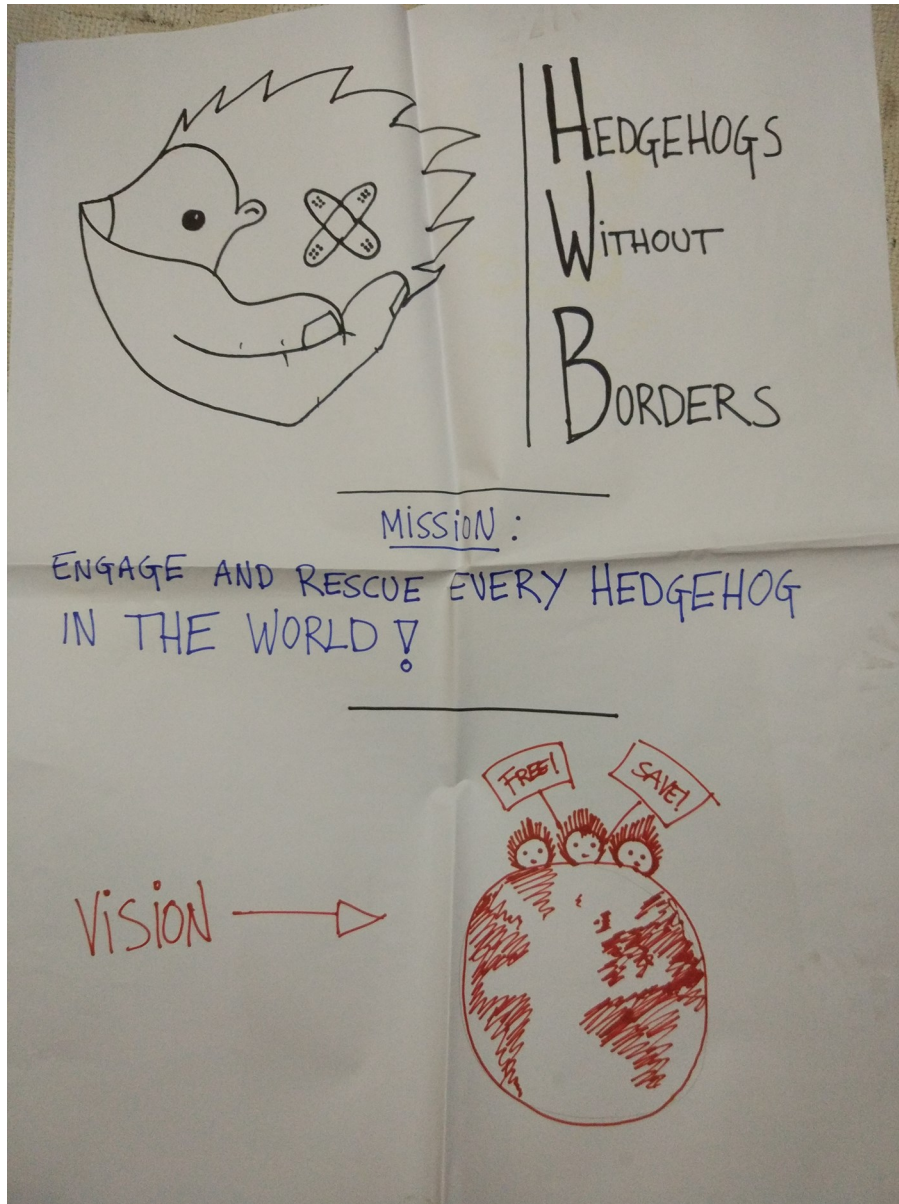 HEDGEHOGS
WITHOUT
BORDERS
MISSION:
ENGAGE AND RESCUE EVERY HEDGEHOG
IN THE WORLD!
FREE!
SAVE!
VISION